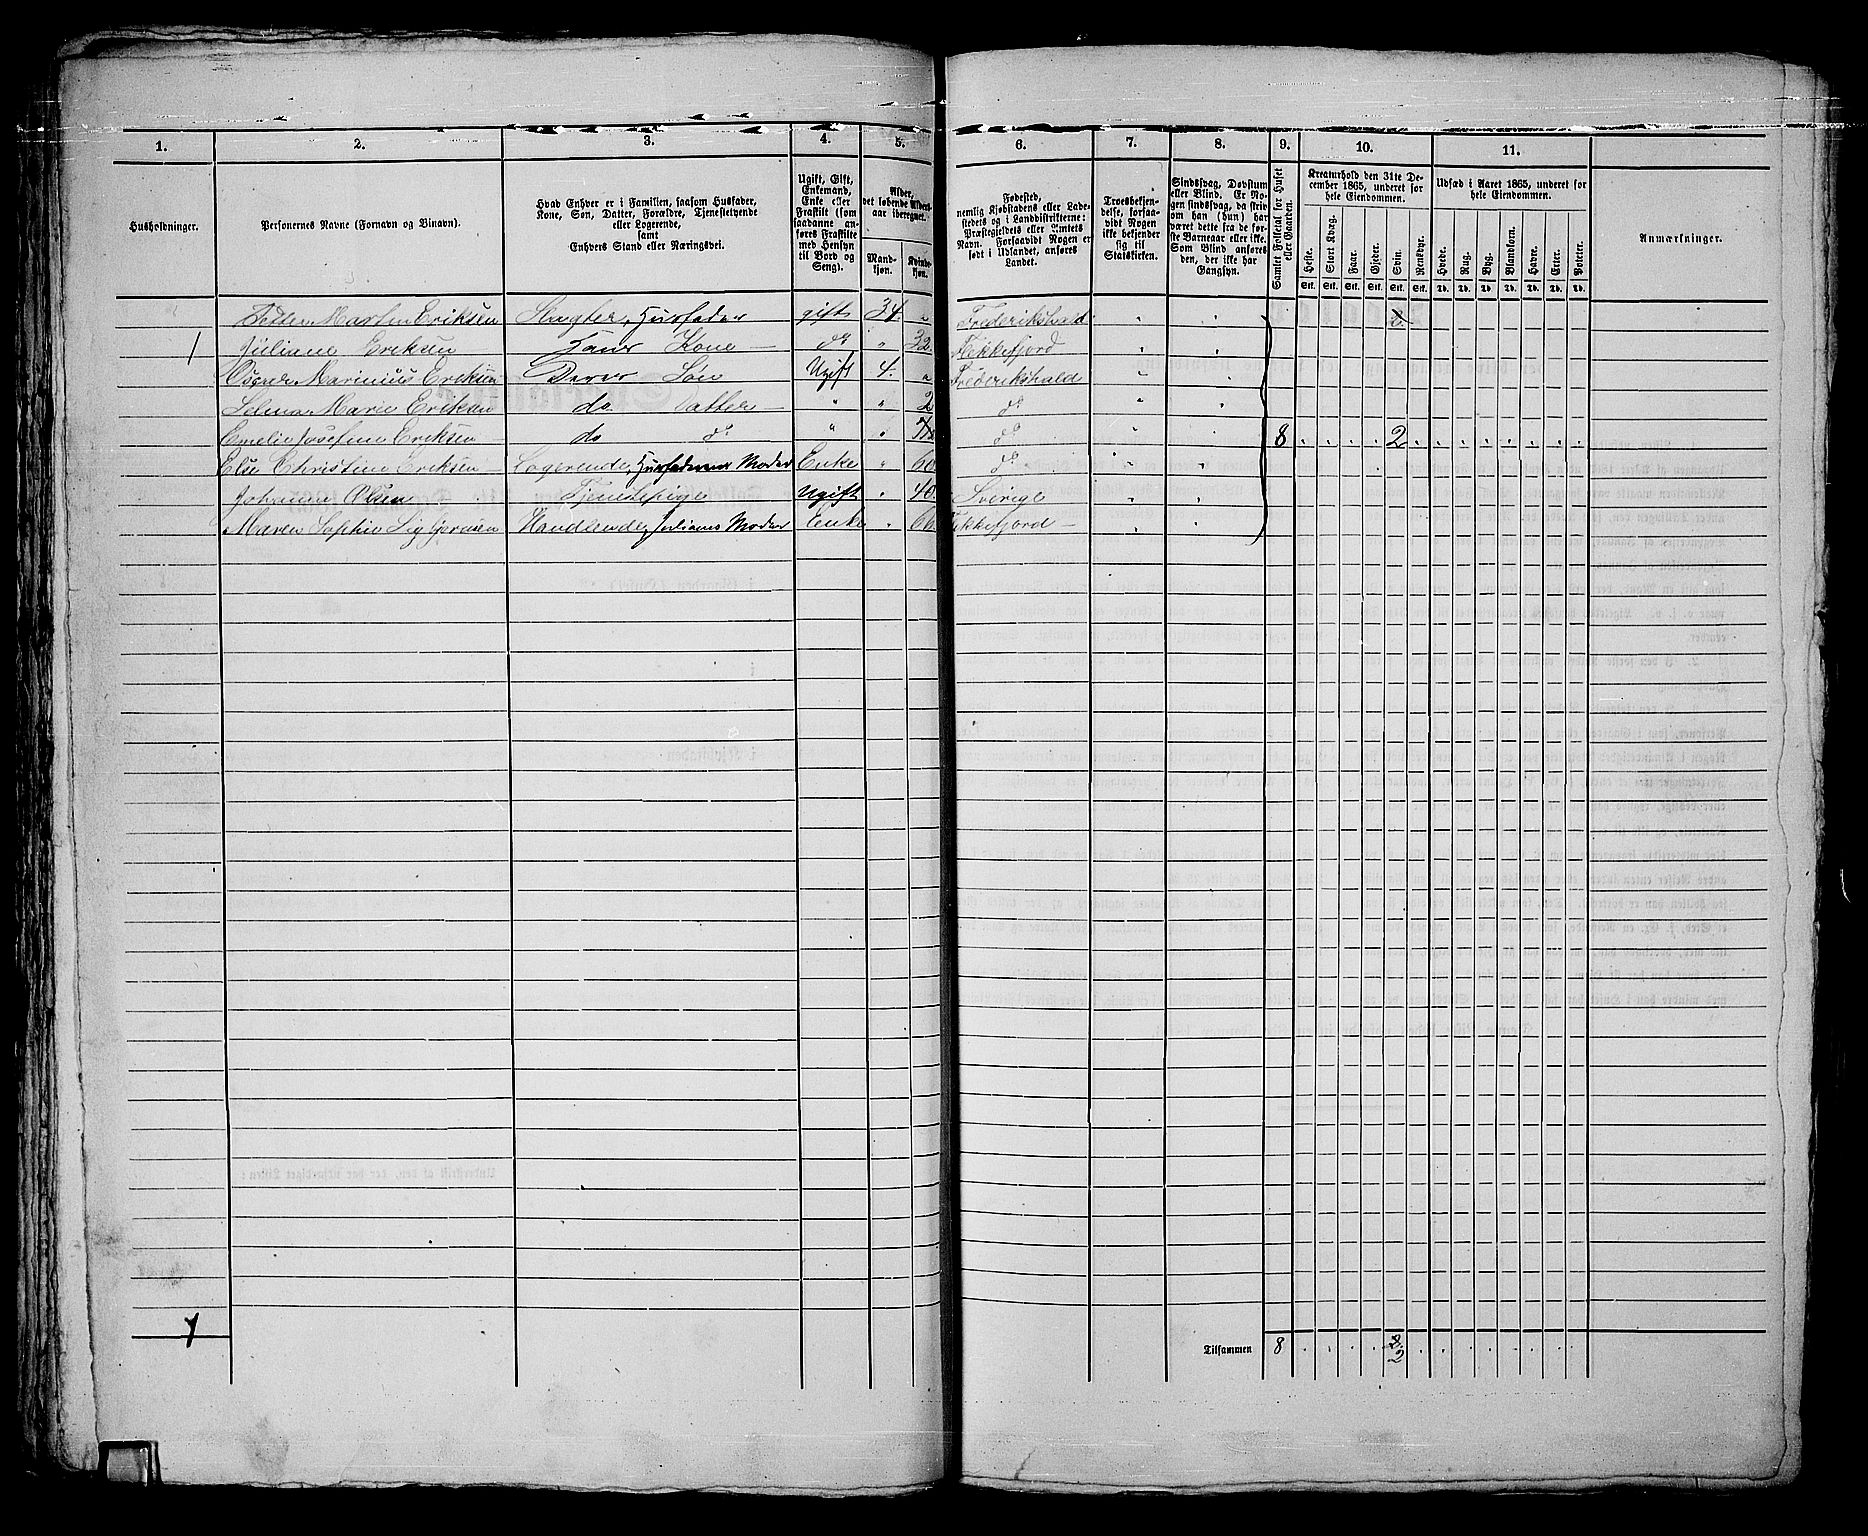 1. 2. 3. 4. 5. 6. 7. 8. 9. 10. 11.
Husholdninger.
Personernes Navne (Fornavn og Binavn).
Hvad Enhver er i Familien, saasom Husfader,
Kone, Søn, Datter, Forældre, Tjenestetyende
eller Logerende,
samt
Enhvers Stand eller Næringsvei.
Ugift, Gift,
Enkemand,
Enke eller
Fraskilt (som
saadanne an-
føres Fraskilte
med Hensyn
til Bord og
Seng).
Alder,
det løbende Alders-
aar iberegnet.
Mand-
kjøn.
Kvinde-
kjøn.
Fødested,
nemlig Kjøbstadens eller Lade-
stedets og i Landdistrikterne:
Præstegjeldets eller Sognets
Navn. Forsaavidt Nogen er
født i Udlandet, anføres
Landet.
Troesbekjen-
delse, forsaa-
vidt Nogen
ikke bekjender
sig til
Statskirken.
Sindssvag, Døvstum
eller Blind. Er No-
gen sindssvag, da skriv
om han (hun) har
været dette fra de før-
ste Barneaar eller ikke.
Som Blind anføres
den, der ikke har
Gangsyn.
Samlet Folketal for Huset
eller Gaarden.
Kreaturhold den 31te De-
cember 1865, underet for
hele Eiendommen.
Heste. Stort Kvæg. Faar. Gjeder. Svin. Rensdyr.
Stk. Stk. Stk. Stk. Stk. Stk.
Udsæd i Aaret 1865, underet for
hele Eiendommen.
Hvede. Rug. Byg. Blandkorn. Havre. Erter. Poteter.
Td. Td. Td. Td. Td. Td. Td.
Anmærkninger.
Petter Martin Eriksen Slagter, Husfader gift 34. " Frederikshald " " 2
1 Juliane Eriksen Hans Kone do " 32. Flekkefjord " "
Oscar Marinius Eriksen Deres Søn Ugift 4. " Frederikshald " "
Selma Marie Eriksen do Datter " " 2 do " "
Emelie Josefine Eriksen do do " " do " 8 2
Else Christine Eriksen Logerende, Husfaderens Moder Enke " 60 do " "
Johanne Olsen Tjenestepige Ugift " 40 Sverige " "
Maren Sophie Handlende, Julianes Moder Enke " 66 Flekkefjord " "
1
Tilsammen 8 2
2